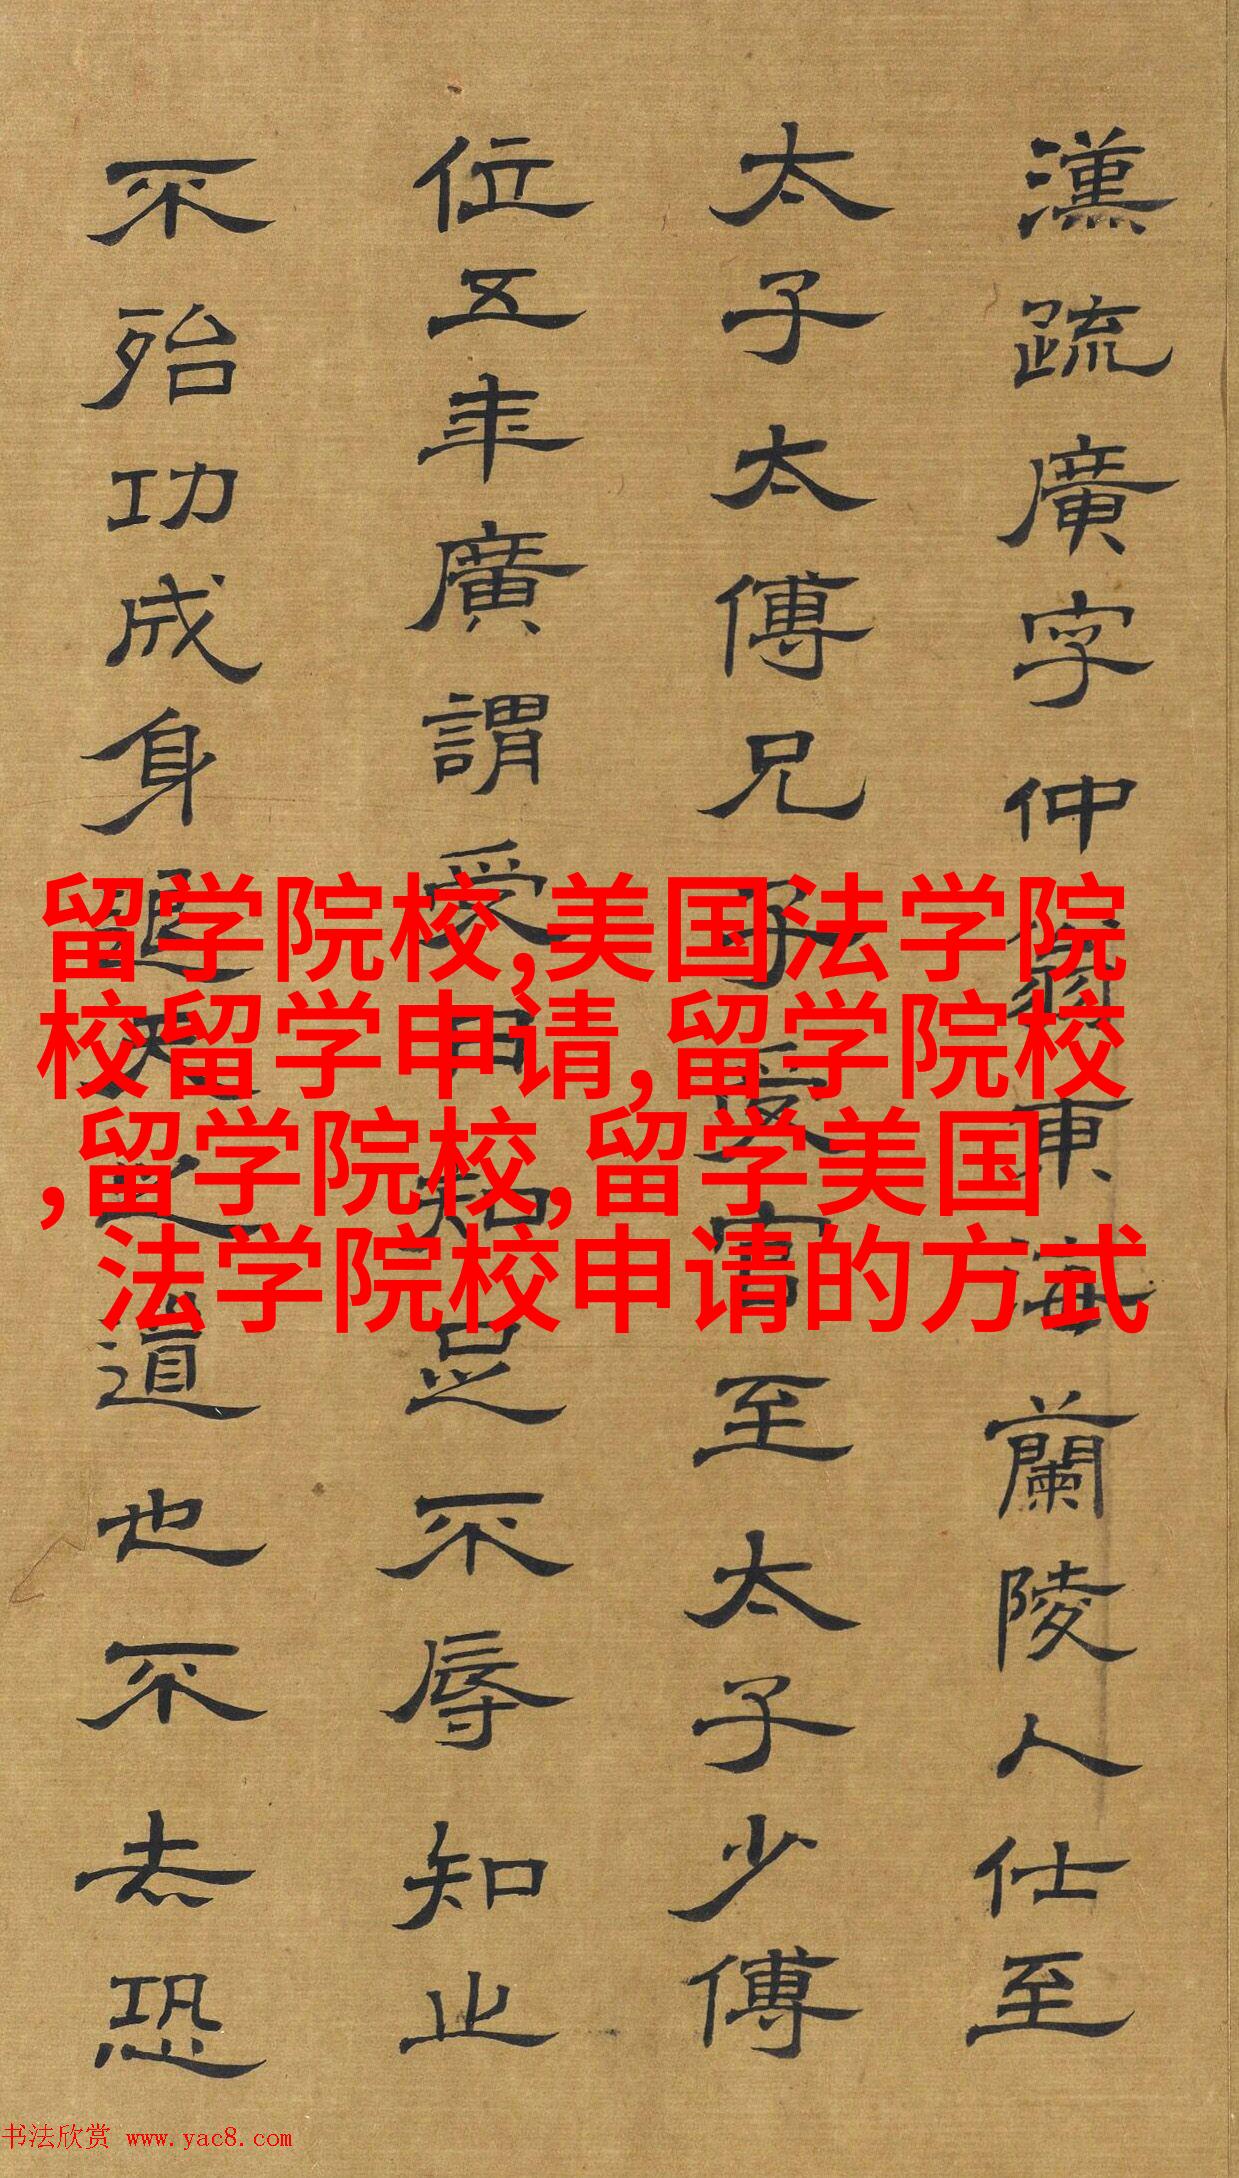 漢疏廣字仲翁東海蘭陵人仕至
太子太傅兄子受官至太子少傅
位五年廣謂受曰知足不辱知止
不殆功成身退天之道也不去恐
留学院校,美国法学院
校留学申请,留学院校
,留学院校,留学美国
法学院校申请的方式
书法欣赏 www.yac8.com